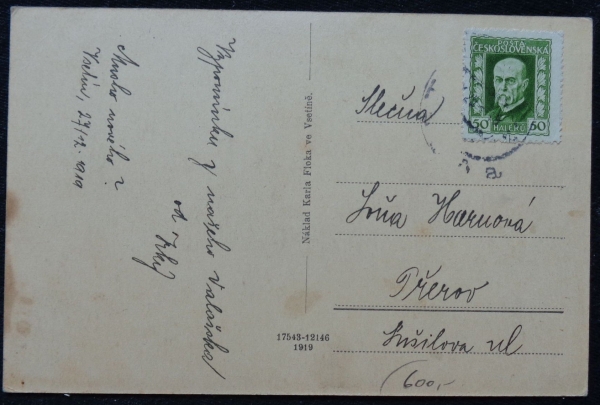 Vzpomínku z našeho Valašska
od
Mnoho nového?
Vsetín, 27/12. 1919
Náklad Karla Floka ve Vsetíně.
17543-12146
1919
POŠTA
ČESKOSLOVENSKÁ
50 HALÉŘŮ 50
Slečna
Haruová
Přerov
Sušilova ul
600,-